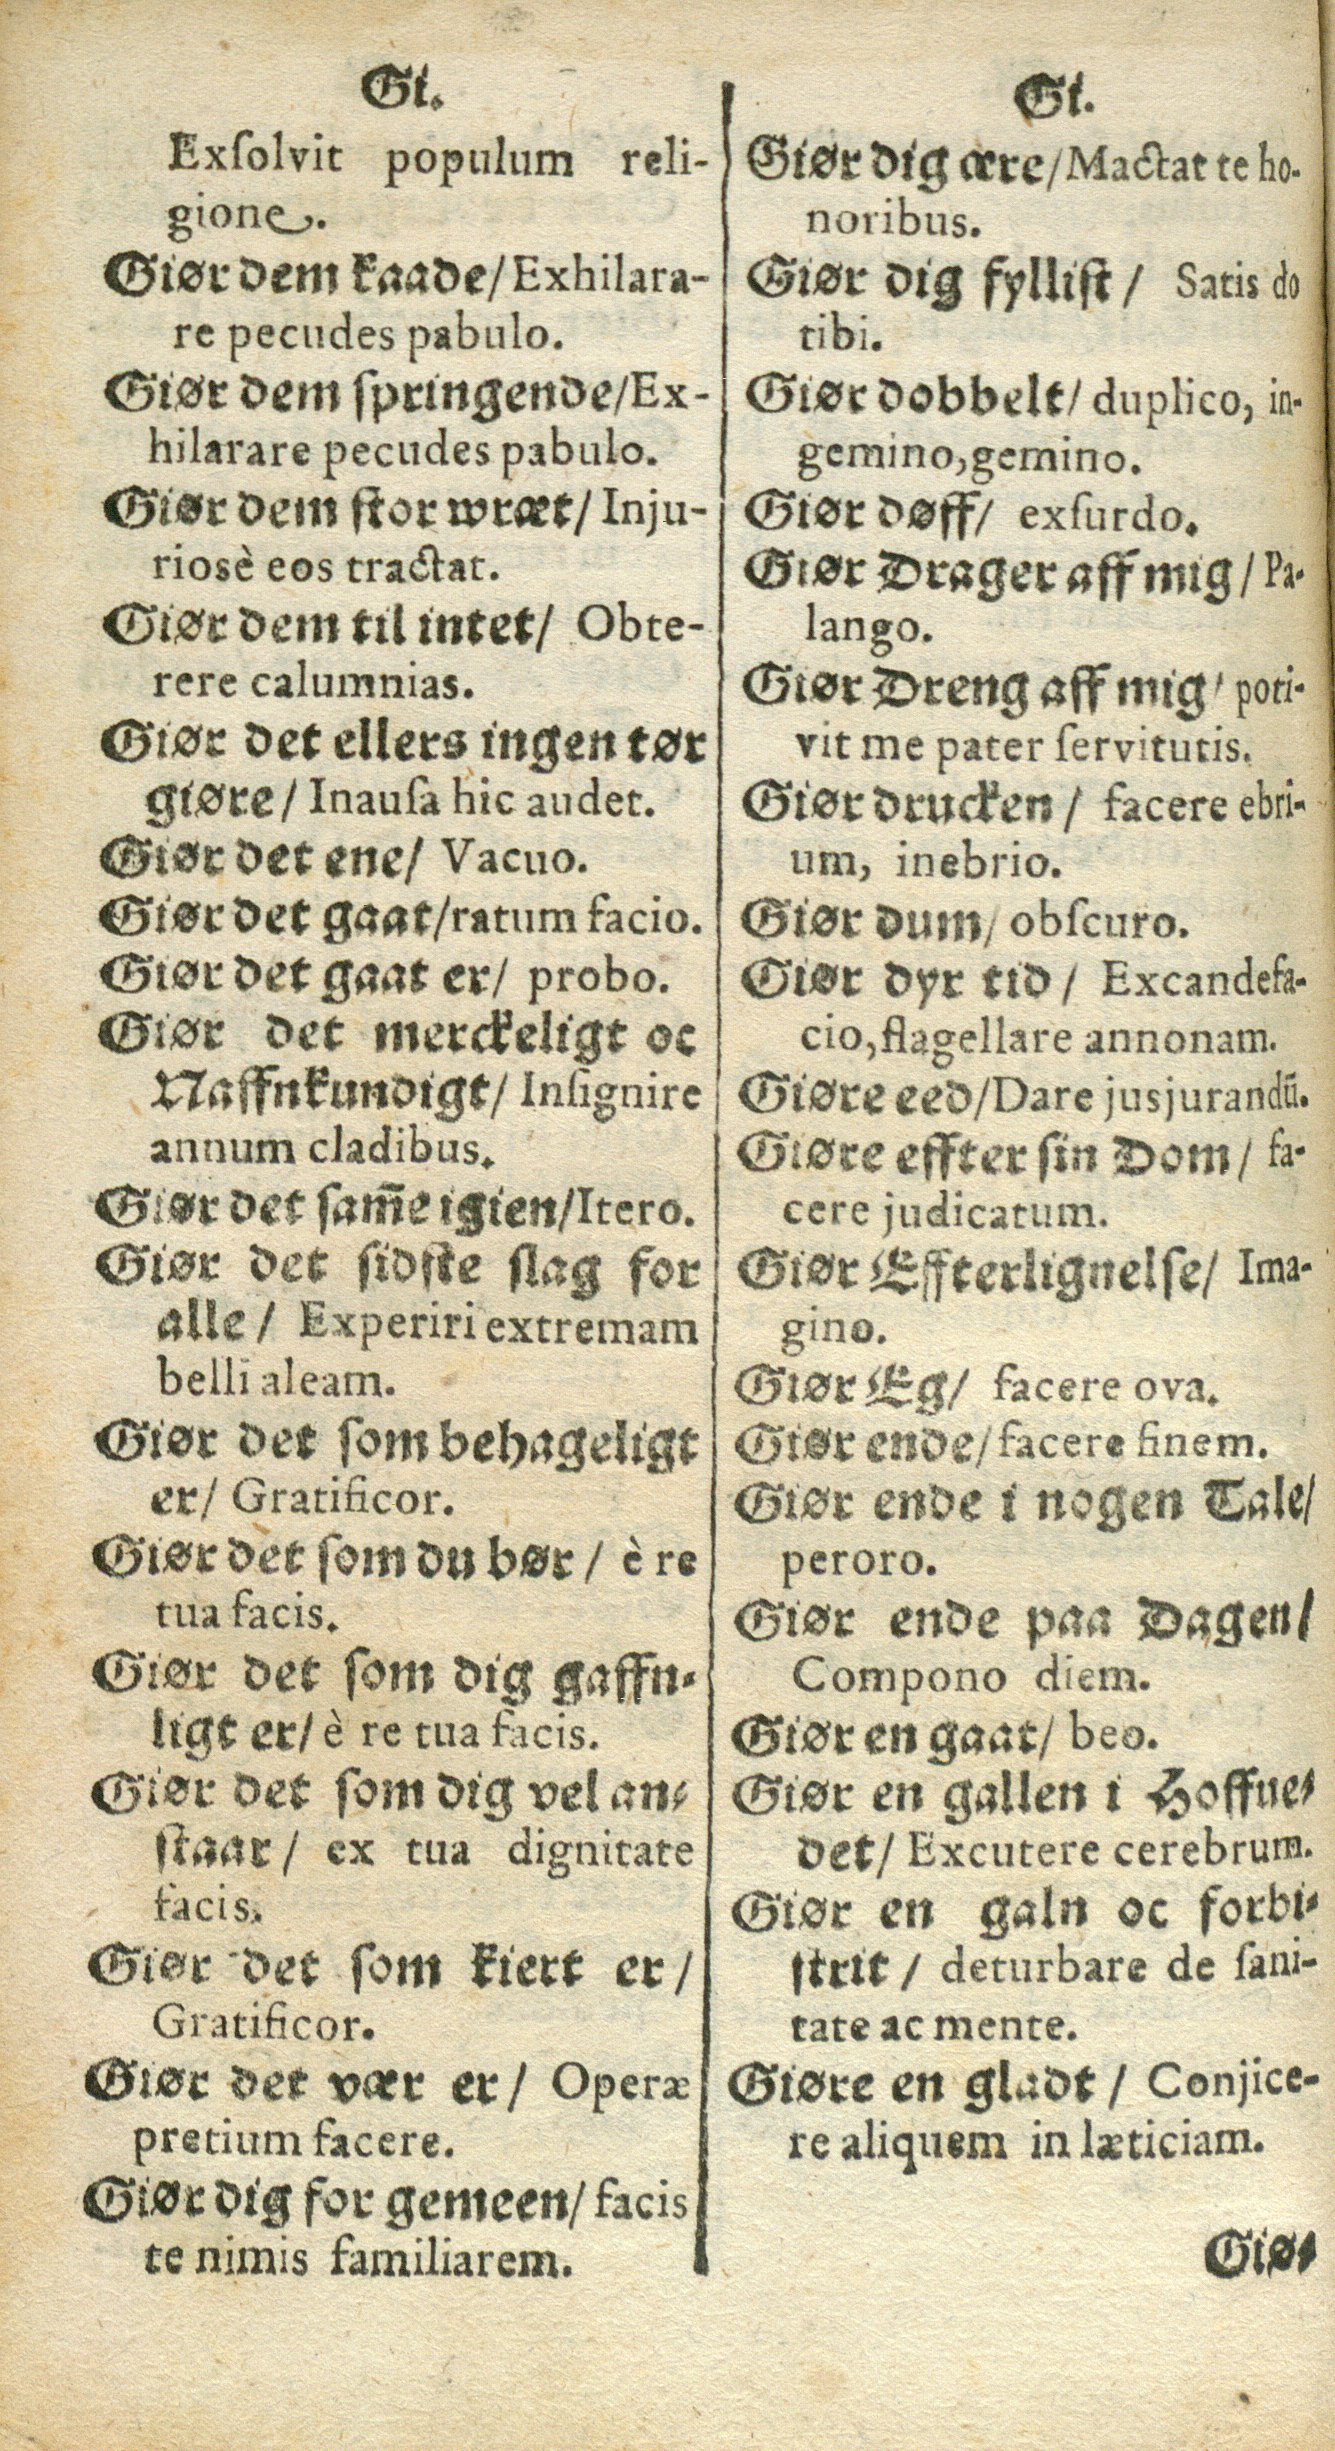 Gi.
Exſolvit populum reli-
gione.
Giør dem kaade/ Exhilara-
re pecudes pabulo.
Giør dem ſpringende/Ex-
hilarare pecudes pabulo.
Giør dem ſtor wræt/ Inju-
riosè eos tractat.
Giør dem til intet/ Obte-
rere calumnias.
Giør det ellers ingen tør
giøre/ Inauſa hic audet.
Giør det ene/ Vacuo.
Giør det gaat/ratum facio.
Giør det gaat er/ probo.
Giør det merckeligt oc
Naffnkundigt/ Inſignire
annum cladibus.
Giør det ſam̄e igien/Itero.
Giør det ſidſte ſlag for
alle/ Experiri extremam
belli aleam.
Giør det ſom behageligt
er/ Gratificor.
Giør det ſom du bør/ è re
tua facis.
Giør det ſom dig gaffn-
ligt er/ è re tua facis.
Giør det ſom dig vel an-
ſtaar/ ex tua dignitate
facis.
Giør det ſom kiert er/
Gratificor.
Giør det vær er/ Operæ
pretium facere.
Giør dig for gemeen/ facis
te nimis familiarem.
Gi.
Giør dig ære/Mactat te ho-
noribus.
Giør dig fylliſt/ Satis do
tibi.
Giør dobbelt/ duplico, in-
gemino,gemino.
Giør døff/ exſurdo.
Giør Drager aff mig/ Pa-
lango.
Giør Dreng aff mig/ poti-
vit me pater ſervitutis.
Giør drucken/ facere ebri-
um, inebrio.
Giør dum/ obſcuro.
Giør dyr tid/ Excandefa-
cio,flagellare annonam.
Giøre eed/Dare jusjurandū.
Giøre effter ſin Dom/ fa-
cere judicatum.
Giør Effterlignelſe/ Ima-
gino.
Giør Eg/ facere ova.
Giør ende/facere finem.
Giør ende i nogen Tale/
peroro.
Giør ende paa Dagen/
Compono diem.
Giør en gaat/ beo.
Giør en gallen i Hoffue-
det/ Excutere cerebrum.
Giør en galn oc forbi-
ſtrit/ deturbare de ſani-
tate ac mente.
Giøre en gladt/ Conjice-
re aliquem in læticiam.
Giø-